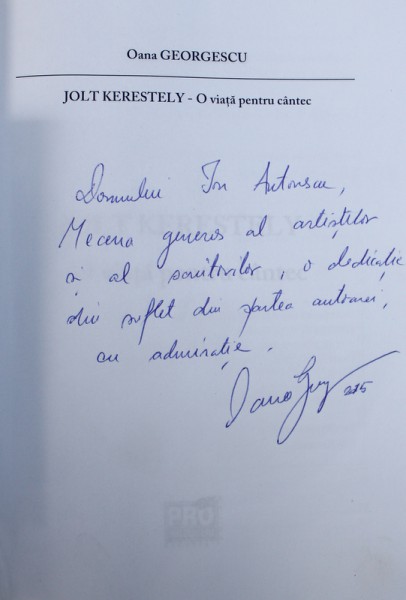 Oana GEORGESCU
JOLT KERESTELY - O viață pentru cântec
Domnului Ion Antonescu,
Mecena generos al artiștilor
și al scriitorilor, o dedicație
din suflet din partea autoarei,
cu admirație.
PRO